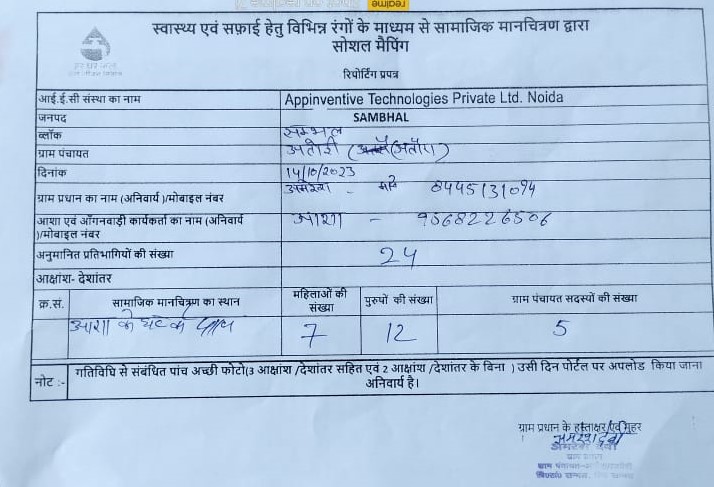 realme
स्वास्थ्य एवं सफ़ाई हेतु विभिन्न रंगों के माध्यम से सामाजिक मानचित्रण द्वारा
सोशल मैपिंग
रिपोर्टिंग प्रपत्र
आई.ई.सी संस्था का नाम Appinventive Technologies Private Ltd. Noida
जनपद SAMBHAL
ब्लॉक सम्भल
ग्राम पंचायत
दिनांक 14/10/2023
ग्राम प्रधान का नाम (अनिवार्य )/मोबाइल नंबर 8445131094
आशा एवं आँगनवाड़ी कार्यकर्ता का नाम (अनिवार्य
)/मोबाइल नंबर आशा - 9568226506
अनुमानित प्रतिभागियों की संख्या 24
आक्षांश- देशांतर
क्र.सं. सामाजिक मानचित्रण का स्थान महिलाओं की संख्या पुरुषों की संख्या ग्राम पंचायत सदस्यों की संख्या
आशा के घर के पास 7 12 5
नोट :- गतिविधि से संबंधित पांच अच्छी फोटो(3 आक्षांश /देशांतर सहित एवं 2 आक्षांश /देशांतर के बिना ) उसी दिन पोर्टल पर अपलोड किया जाना
अनिवार्य है।
ग्राम प्रधान के हस्ताक्षर एवं मुहर
ग्राम प्रधान
ग्राम पंचायत-